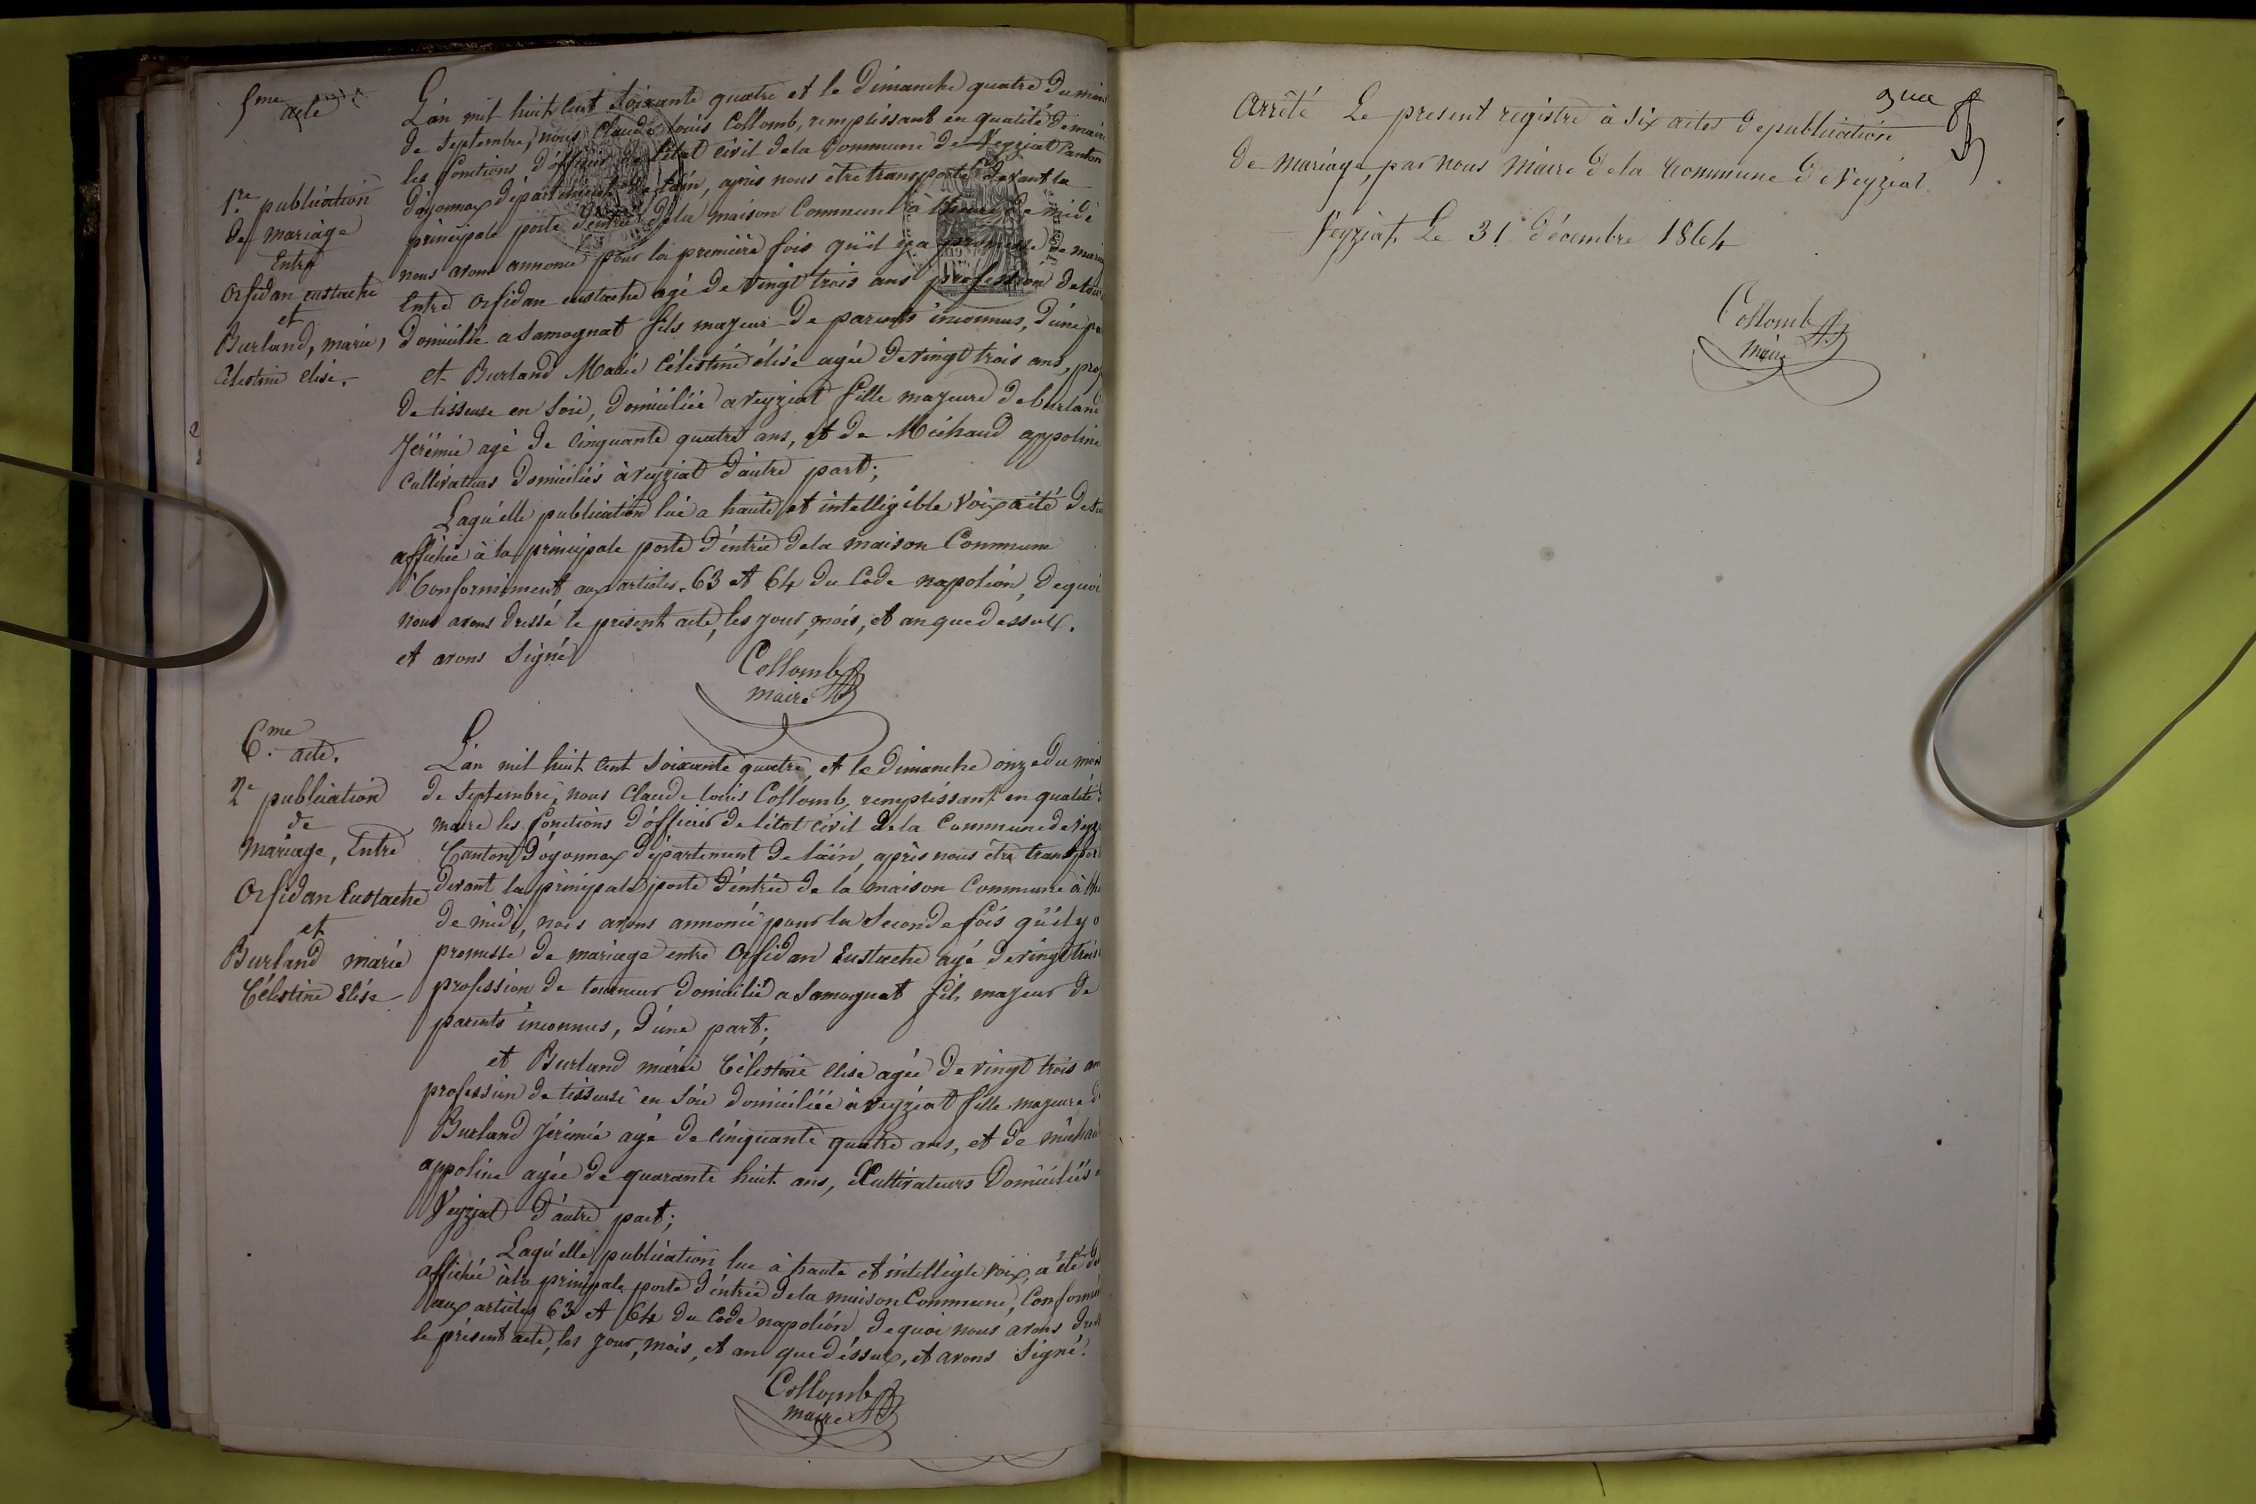 5me
acte
1re publication
de mariage
Entre
Orfidan eustache
et
Burland, marie,
Célestine elise.
L'an mil huit cent soixante quatre et le Dimanche quatre du mois
de Septembre, nous Claude louis Collomb, remplissant en qualité de maire
les fonctions d'officier de l'état civil de la Commune de Veyziat Canton
d'oyonnax département de l'ain, après nous être transporté devant la
principale porte d'entrée de la maison Commune à l'heure de midi
nous avons annoncé pour la première fois qu'il y a promesse de maria
Entre Orfidan eustache agé de vingt trois ans profession de tour
domicilié a Samognat fils majeur de parents inconnus, d'une pa
et Burland Marie Célestine élise agée de vingt trois ans, prof
de tisseuse en soie, domiciliée a veyziat fille majeure de burland
Jérémie agé de cinquante quatre ans, et de Michaud appoline
cultivateurs domiciliés à veyziat d'autre part;
Laquelle publication lue a haute et intelligible voix a été de su
affichée à la principale porte d'entrée de la maison Commune
Conformément aux articles 63 et 64 du Code napoléon, de quoi
nous avons dressé le présent acte, les jour, mois, et an que dessus.
et avons signé
Collomb
maire
6.me
acte.
2e publication
de
mariage, Entre
Orfidan Eustache
et
Burland marie
Célestine Elise
L'an mil huit cent soixante quatre, et le dimanche onze du mois
de Septembre, nous Claude louis Collomb, remplissant en qualité d
maire les fonctions d'officier de l'état civil de la Commune de veyz
Canton d'oyonnax département de l'ain, après nous être transpor
devant la principale porte d'entrée de la maison Commune à l'he
de midi, nous avons annoncé pour la Seconde fois qu'il y a
promesse de mariage entre Orfidan Eustache agé de vingt trois
profession de tourneur domicilié a Samognat fils majeur de
parents inconnus, d'une part;
et Burland marie Célestine elise agée de vingt trois an
profession de tisseuse en soie domiciliée à veyziat fille majeure d
Burland Jérémie agé de cinquante quatre ans, et de michau
appoline agée de quarante huit ans, Cultivateurs Domiciliés a
Veyziat d'autre part;
Laquelle publication lue à haute et intelligle voix, a été de
affichée à la principale porte d'entrée de la maison Commune, Conformé
aux articles 63 et 64 du Code napoléon, de quoi nous avons dres
le présent acte, les jour, mois, et an que dessus, et avons signé.
Collomb
maire
Arrêté Le present registre à six actes de publication
de mariage, par nous Maire de la Commune de Veyziat.
Veyziat, Le 31 décembre 1864
Collomb
Maire